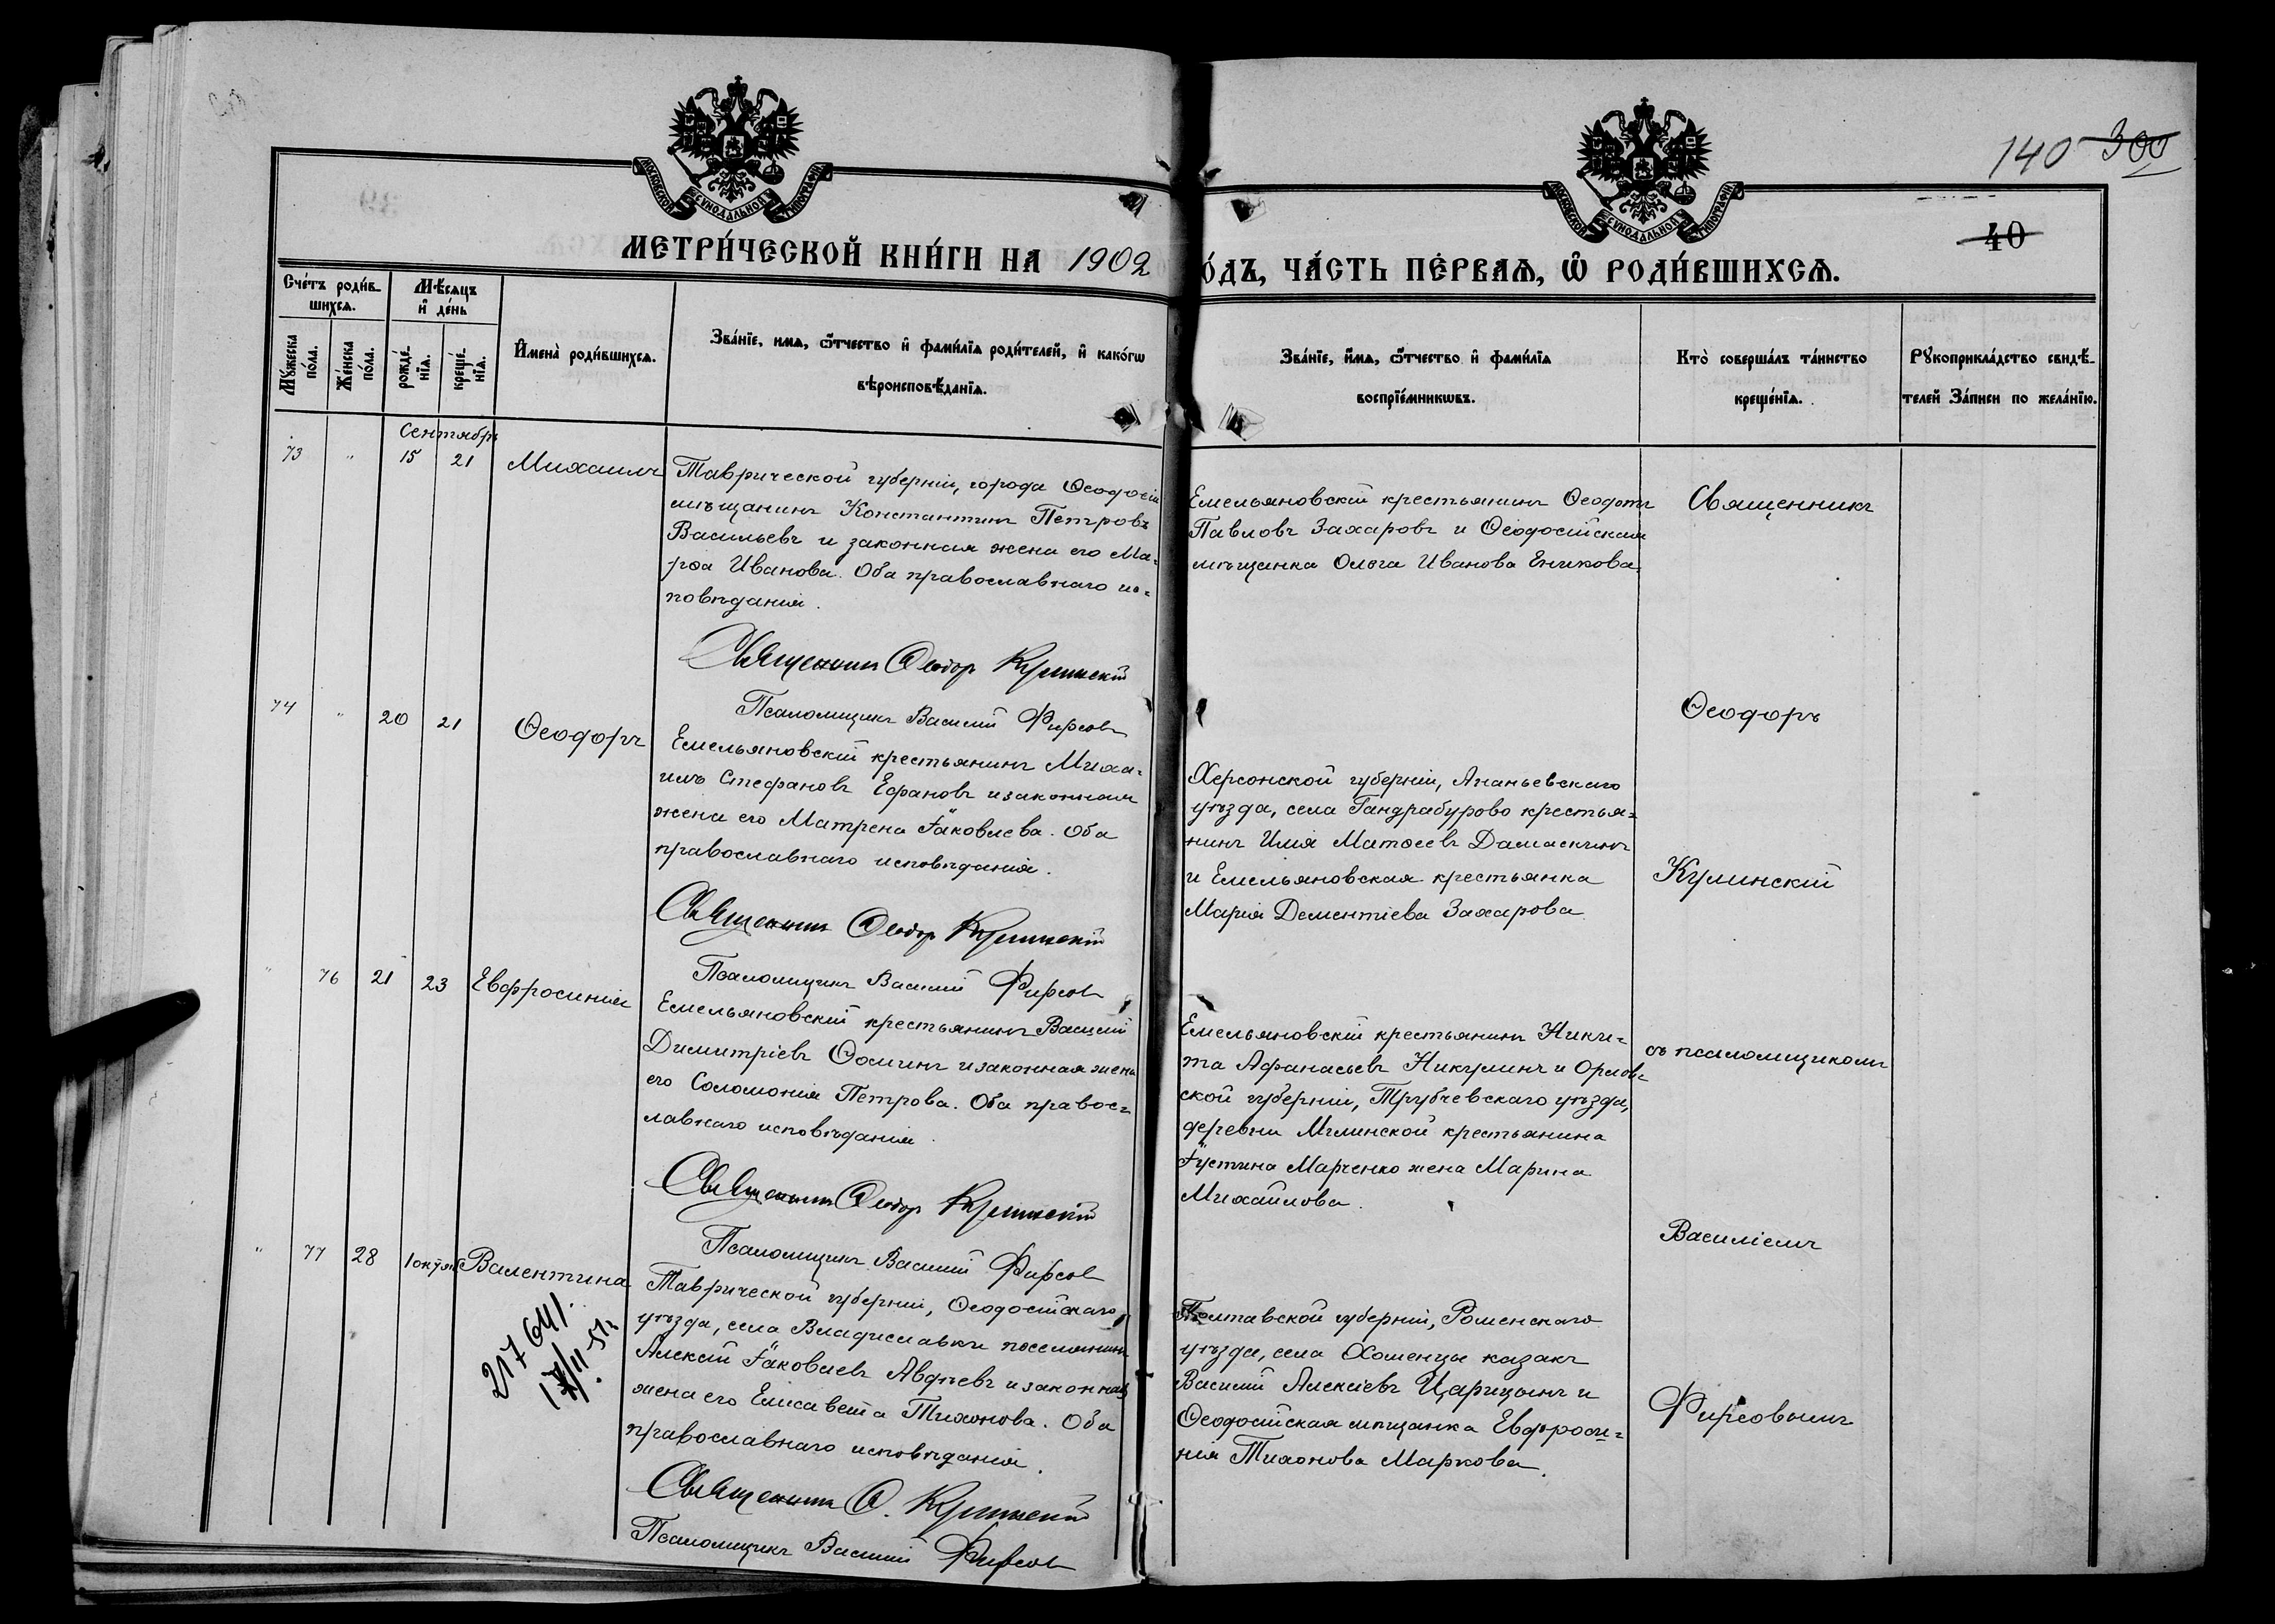 140 300
40
МОСКОВСКОЙ СѴНОДАЛЬНОЙ ТИПОГРАФІИ
МОСКОВСКОЙ СѴНОДАЛЬНОЙ ТИПОГРАФІИ
МЕТРИ́ЧЕСКОЙ КНИ́ГИ НА 1902
О́ДЪ, ЧА́СТЬ ПЕ́РВАѦ, Ѡ РОДИ́ВШИХСѦ.
Сче́тъ роди́в-
шихсѧ.
Мѣ́сѧцъ
и де́нь
Мꙋ́жеска
по́ла.
Же́нска
по́ла.
рожде́-
нїѧ.
креще́-
нїѧ.
Имена̀ роди́вшихсѧ.
Зва́нїе, имѧ, ѻ́тчество и фами́лїѧ роди́телей, и како́гѡ
вѣроисповѣ́данїѧ.
Зва́нїе, имѧ, ѻ́тчество и фами́лїѧ
воспрїе́мникѡвъ.
Кто̀ соверша́лъ та́инство
креще́нїѧ.
Рꙋкоприкла́дство свидѣ́-
телей За́писи по жела́нїю.
Сентябрь
73 " 15 21 Михаилъ
Таврической губерніи, города Ѳеодосіи
мѣщанинъ Константинъ Петровъ
Васильевъ и законная жена его Ма-
рѳа Иванова. Оба православнаго ис-
повѣданія.
Священникъ Ѳеодоръ Кулинскій
Псаломщикъ Василій Фирсовъ
Емельяновскій крестьянинъ Ѳеодотъ
Павловъ Захаровъ и Ѳеодосійская
мѣщанка Ольга Иванова Еникова
Священникъ
74 " 20 21 Ѳеодоръ
Емельяновскій крестьянинъ Миха-
илъ Стефановъ Ефановъ и законная
жена его Матрена Іаковлева. Оба
православнаго исповѣданія.
Священникъ Ѳеодоръ Кулинскій
Псаломщикъ Василій Фирсовъ
Херсонской губерніи, Ананьевскаго
уѣзда, села Гандрабурово крестья-
нинъ Илія Матѳеевъ Дамаскинъ
и Емельяновская крестьянка
Марія Дементіева Захарова
Ѳеодоръ
Кулинскій
" 76 21 23 Евфросинія
Емельяновскій крестьянинъ Василій
Димитріевъ Ѳоминъ и законная жена
его Соломонія Петрова. Оба правос-
лавнаго исповѣданія.
Священникъ Ѳеодоръ Кулинскій
Псаломщикъ Василій Фирсовъ
Емельяновскій крестьянинъ Ники-
та Афанасьевъ Никулинъ и Орлов-
ской губерніи, Трубчевскаго уѣзда,
деревни Милинской крестьянина
Іустина Марченко жена Марина
Михайлова.
съ псаломщикомъ
Василіемъ
" 77 28 1 октяб Валентина
217641.
17/11 51г
Таврической губерніи, Ѳеодосійскаго
уѣзда, села Владиславки поселянинъ
Алексій Іаковлевъ Авдѣевъ и законная
жена его Елисавета Тихонова. Оба
православнаго исповѣданія.
Священникъ Ѳ. Кулинскій
Псаломщикъ Василій Фирсовъ
Полтавской губерніи, Роменскаго
уѣзда, села Хоменцы казакъ
Василій Алексіевъ Царицынъ и
Ѳеодосійская мѣщанка Евфроси-
нія Тихонова Маркова.
Фирсовымъ